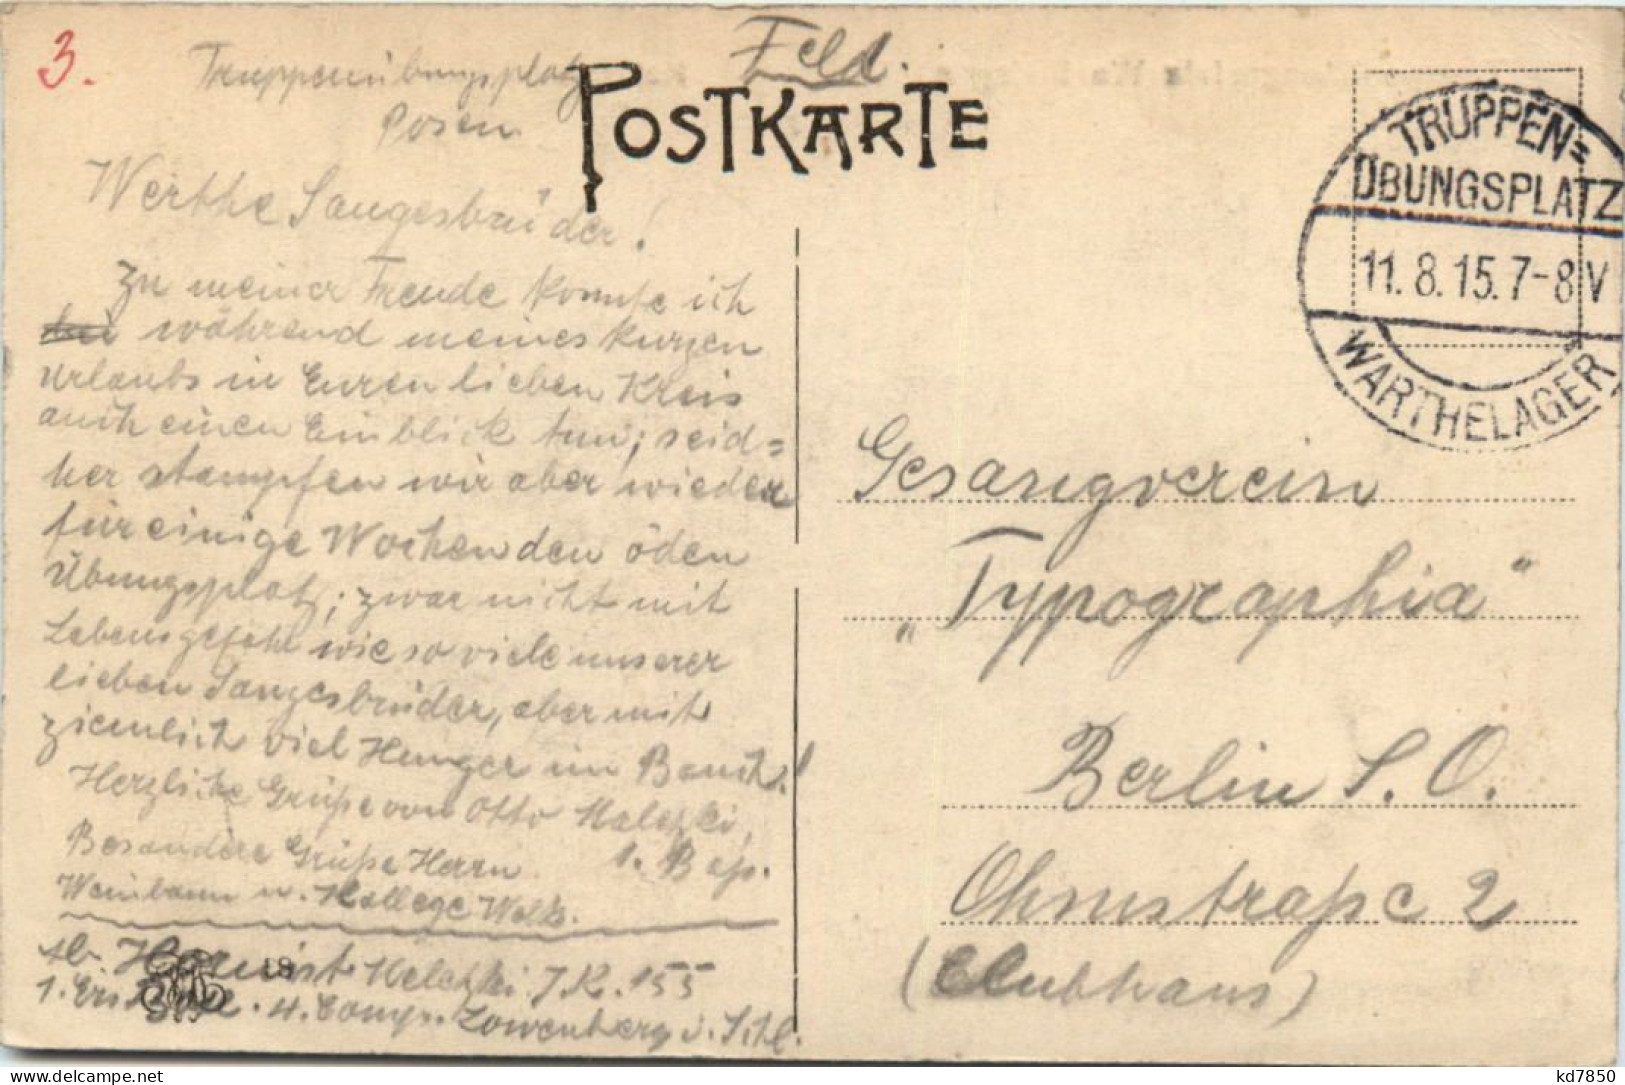 3.
Feld.
Truppenübungsplatz
Posen
POSTKARTE
TRUPPEN=
ÜBUNGSPLATZ
11.8.15.7-8V
WARTHELAGER
Werthe Sangesbrüder!
Zu meiner Freude konnte ich
während meines kurzen
Urlaubs in Euren lieben Kreis
auch einen Einblick tun; seid=
her stampfen wir aber wieder
für einige Wochen den öden
Übungsplatz; zwar nicht mit
Lebensgefahr wie so viele unserer
lieben Sangesbrüder, aber mit
ziemlich viel Hunger im Bauch!
Herzliche Grüße von Otto Malezki,
1. Baß.
Besondere Grüße Herrn
Weinbaum u. Kollege Wolk.
Hornist Malezki J.R. 155
1. Ers. 4. Comp. Löwenberg i. Schl.
18
Gesangverein
„Typographia"
Berlin S.O.
Ohmstraße 2
(Clubhaus)
kd7850